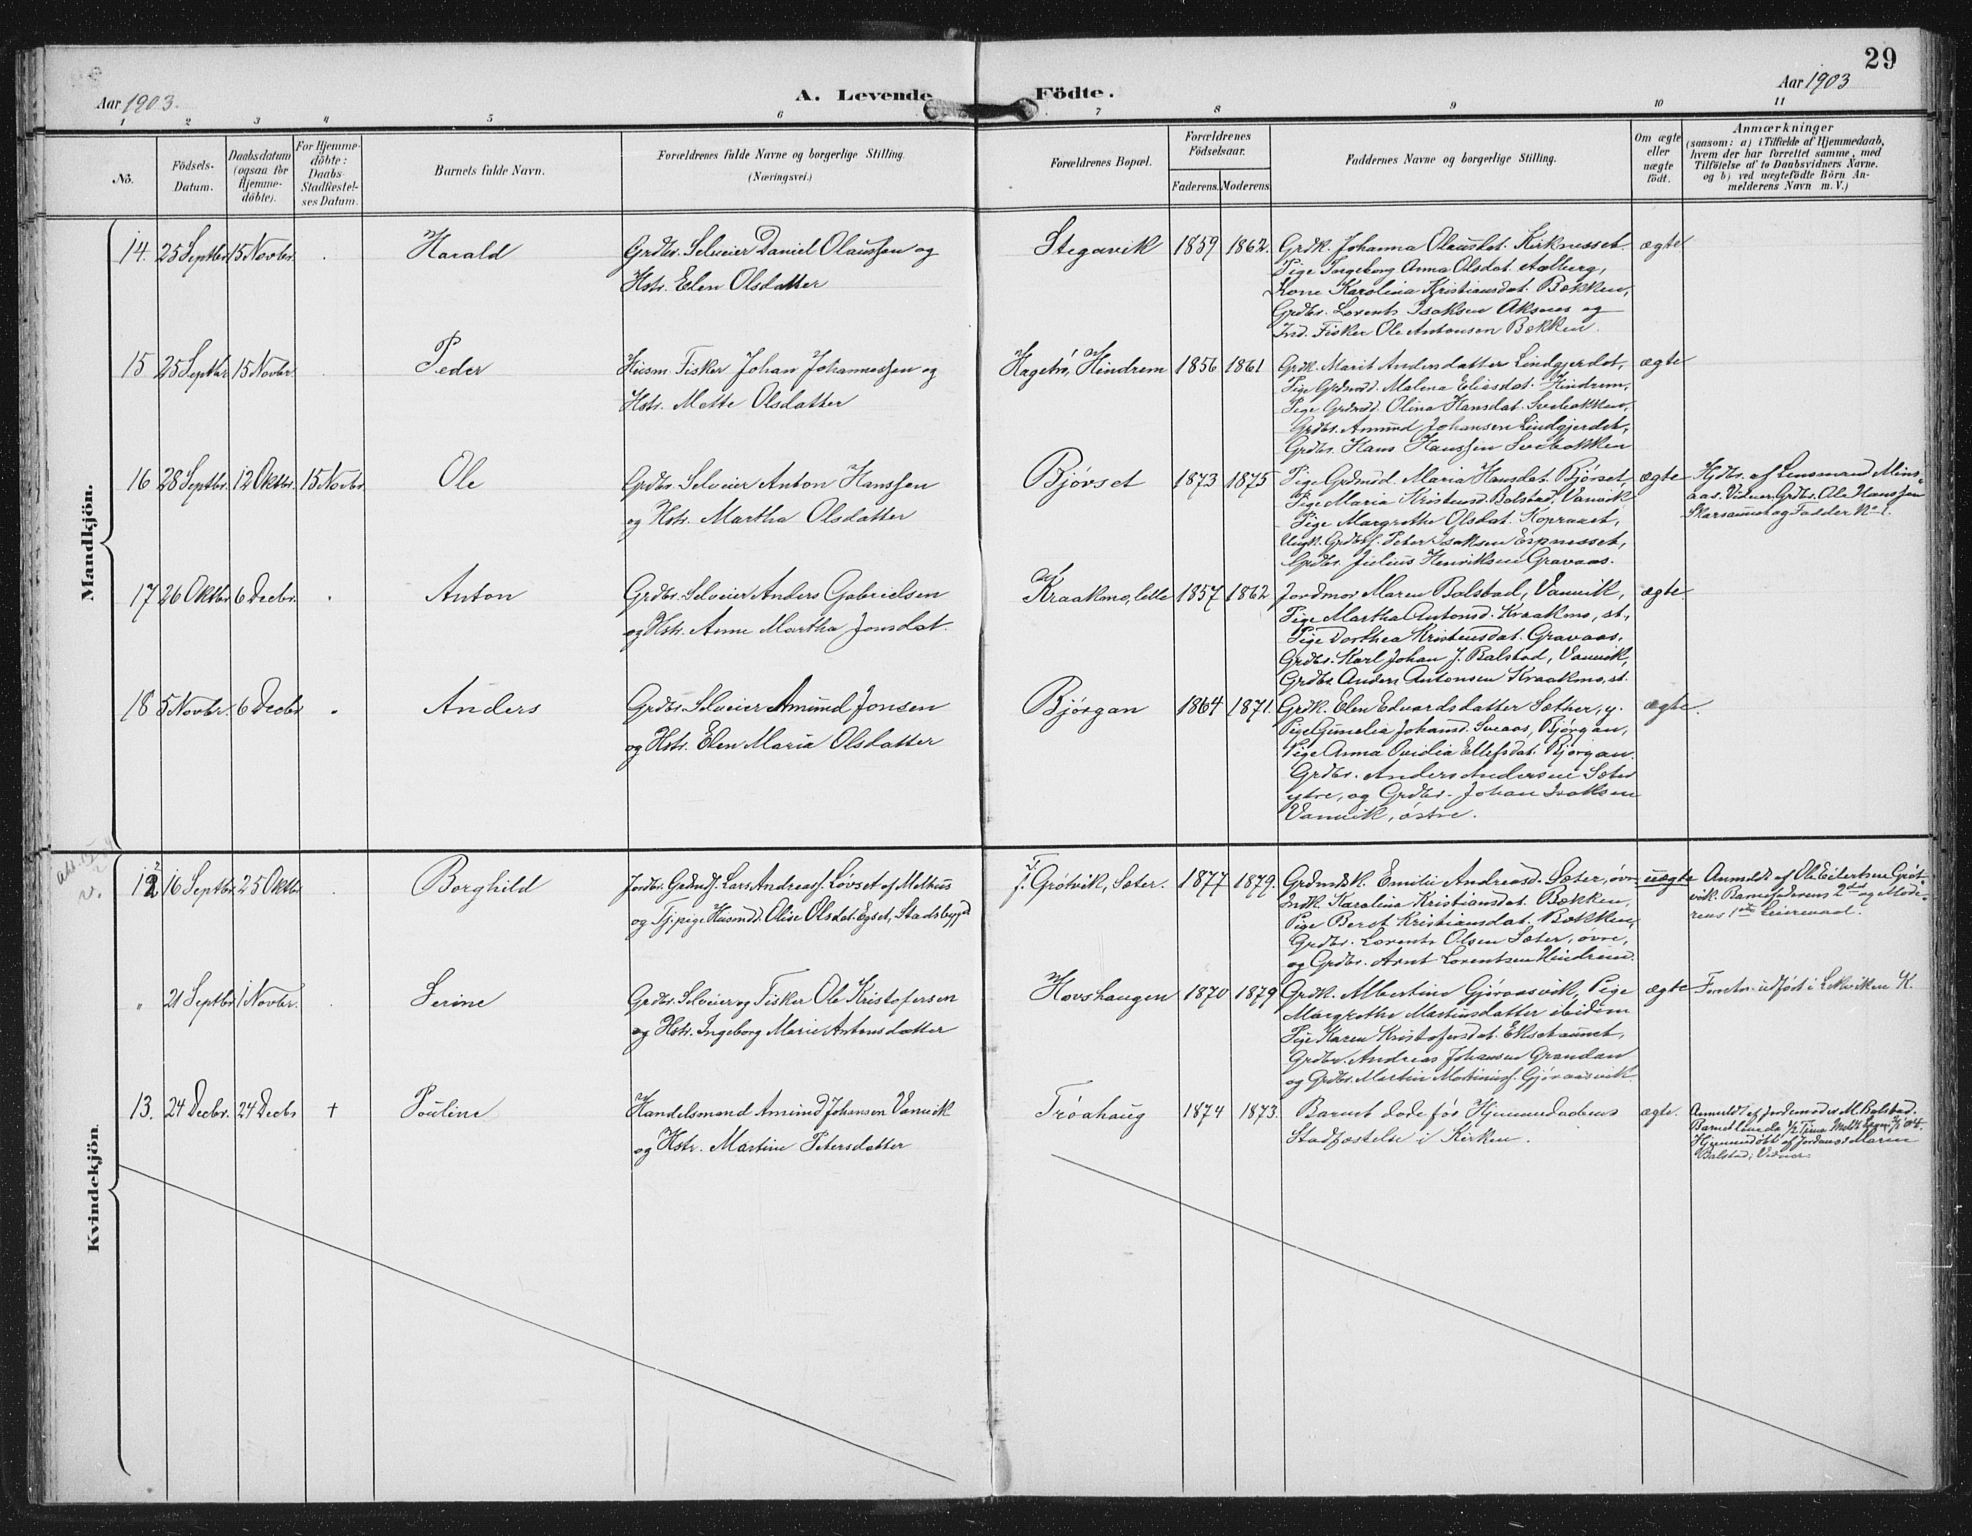 29
Aar 1903.
A. Levende Födte.
Aar 1903
1 2 3 4 5 6 7 8 9 10 11
No.
Födsels-
Datum.
Daabsdatum
(ogsaa for
Hjemme-
döbte).
For Hjemme-
döbte:
Daabs-
Stadfæstel-
ses Datum.
Barnets fulde Navn.
Forældrenes fulde Navne og borgerlige Stilling.
(Næringsvei.)
Forældrenes Bopæl.
Forældrenes
Födselsaar.
Faderens. Moderens.
Faddernes Navne og borgerlige Stilling.
Om ægte
eller
uægte
født.
Anmærkninger
(saasom: a) i Tilfælde af Hjemmedaab,
hvem der har forrettet samme, med
Tilföielse af to Daabsvidners Navne.
og b) ved uægtefödte Börn An-
melderens Navn m. V.)
Mandkjön.
14. 25 Septbr 15 Novbr. Harald
Grdbr. Selveier Daniel Olaussen og
Hstr. Elen Olsdatter
Stegavik 1859 1862.
Grdk. Johanna Olausdat. Kirknesset.
Pige Ingeborg Anna Olsdat. Aalberg,
Kone Karolina Kristiansdat. Bækken,
Grdbr. Lorents Isaksen Aksnes og
Ind. Fisker Ole Antonsen Bækken.
ægte
15 25 Septbr 15 Novbr. Peder
Husm. Fisker Johan Johannessen og
Hstr. Mette Olsdatter
Hagebø, Hindrem 1856 1861
Grdk. Marit Andersdatter Lindgjerdet,
Pige Grdmd. Malena Eliasdat. Hindrem,
Pige Grdmd. Olina Hansdat. Svebakken,
Grdbr. Amund Johansen Lindgjerdet,
Grdbr. Hans Hanssen Svebakken
ægte
16 28 Septbr. 12 Oktbr. 15 Novbr Ole
Grdbr. Selveier Anton Hanssen
og Hstr. Martha Olsdatter
Bjørset 1873 1875
Pige Grdmd. Maria Hansdat. Bjørset,
Pige Maria Kristensd. Balstad, Vanvik
Pige Margrethe Olsdat. Kopraaet,
Ungk. Grdbrs. Peter Isaksen Espnesset,
Grdbr. Julius Henriksen Gravaas.
ægte
Hjdbr. af Lensmand Mins-
aas. Vidner Grdbr. Ole Hanssen
Skarsaunet og Fadder No 1.
17 26 Oktbr. 6 Decbr. Anton
Grdbr. Selveier Anders Gabrielsen
og Hstr. Anne Martha Jonsdat.
Kraakmo, lille 1857 1862
Jordmor Maren Balstad, Vanvik,
Pige Martha Antonsd. Kraakmo, st.,
Pige Dorthea Kristensdat. Gravaas,
Grdbr. Karl Johan J. Balstad, Vanvik,
Grdbr. Anders Antonsen Kraakmo, st.
ægte
18 5 Novbr. 6 Decbr Anders
Grdbr. Selveier Amund Jonsen
og Hstr. Elen Maria Olsdatter
Bjørgan 1864 1871.
Grdk. Elen Edvardsdatter Sæther, y.
Pige Gunelia Johansd. Sveaas, Bjørgan,
Pige Anna Ovidia Ellefsdat. Bjørgan.
Grdbr. Anders Andersen Sæter
ytre, og Grdbr. Johan Isaksen
Vanvik, østre.
ægte.
Kvindekjön.
12 16 Septbr. 25 Oktbr Borghild
Jordbr. Grdmds. Lars Andreass. Løvset af Melhus
og Tjpige Husmd. Olise Olsdat. Egset, Stadsbygd
f. Grötvik, Sæter. 1877 1879.
Grdmdk. Emilie Andreasd. Sæter, øvre
Indk. Karolina Kristiansdat. Bækken,
Pige Beret Kristiansdat. Bækken,
Grdbr. Lorents Olsen Sæter, øvre,
og Grdbr. Arnt Lorentsen Hindrem.
uægte
Anmeldt af Ole Eilertsen Gröt-
vik. Barnefaderens 2det og Mode-
rens 1ste Leiermaal.
" 21 Septbr. 1 Novbr. Serine
Grdbr. Selveier og Fisker Ole Kristofersen
og Hstr. Ingeborg Marie Antonsdatter
Hovshaugen 1870 1879
Grdk. Albertine Gjöraasvik, Pige
Margrethe Martinsdatter ibidem
Pige Karen Kristofersdat. Eksetaunet,
Grdbr. Andreas Johansen Grandan
og Grdbr. Martin Martinuss. Gjöraasvik.
ægte
Forretn. udført i Leksviken K.
13. 24 Decbr. 24 Decbr + Pauline
Handelsmand Amund Johansen Vanvik
og Hstr. Martine Petersdatter
Tröahaug 1874 1873.
Barnet döde før Hjemmedaabens
Stadfæstelse i Kirken.
ægte.
Anmeldt af Jordemoder M. Balstad.
Barnet levede 1/2 Time
Hjemmedöbt af Jordemoder Maren
Balstad; Vidner: